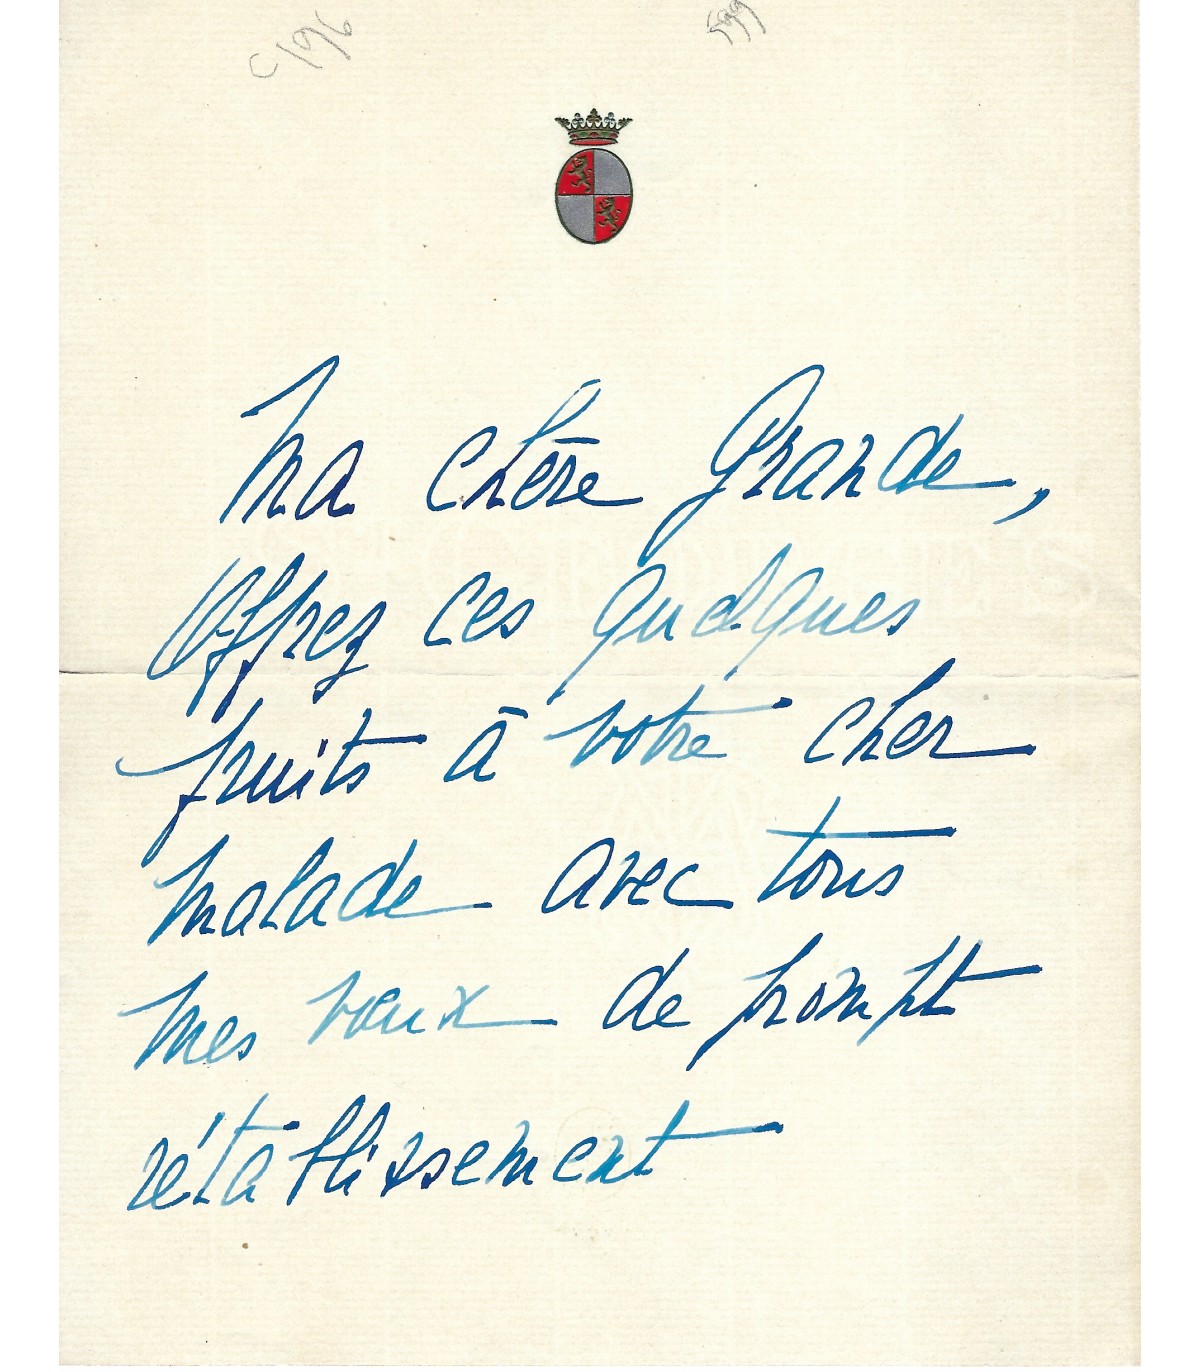 C196
599
Ma chère Grande,
Offrez ces quelques
fruits à votre cher
malade avec tous
mes vœux de prompt
rétablissement